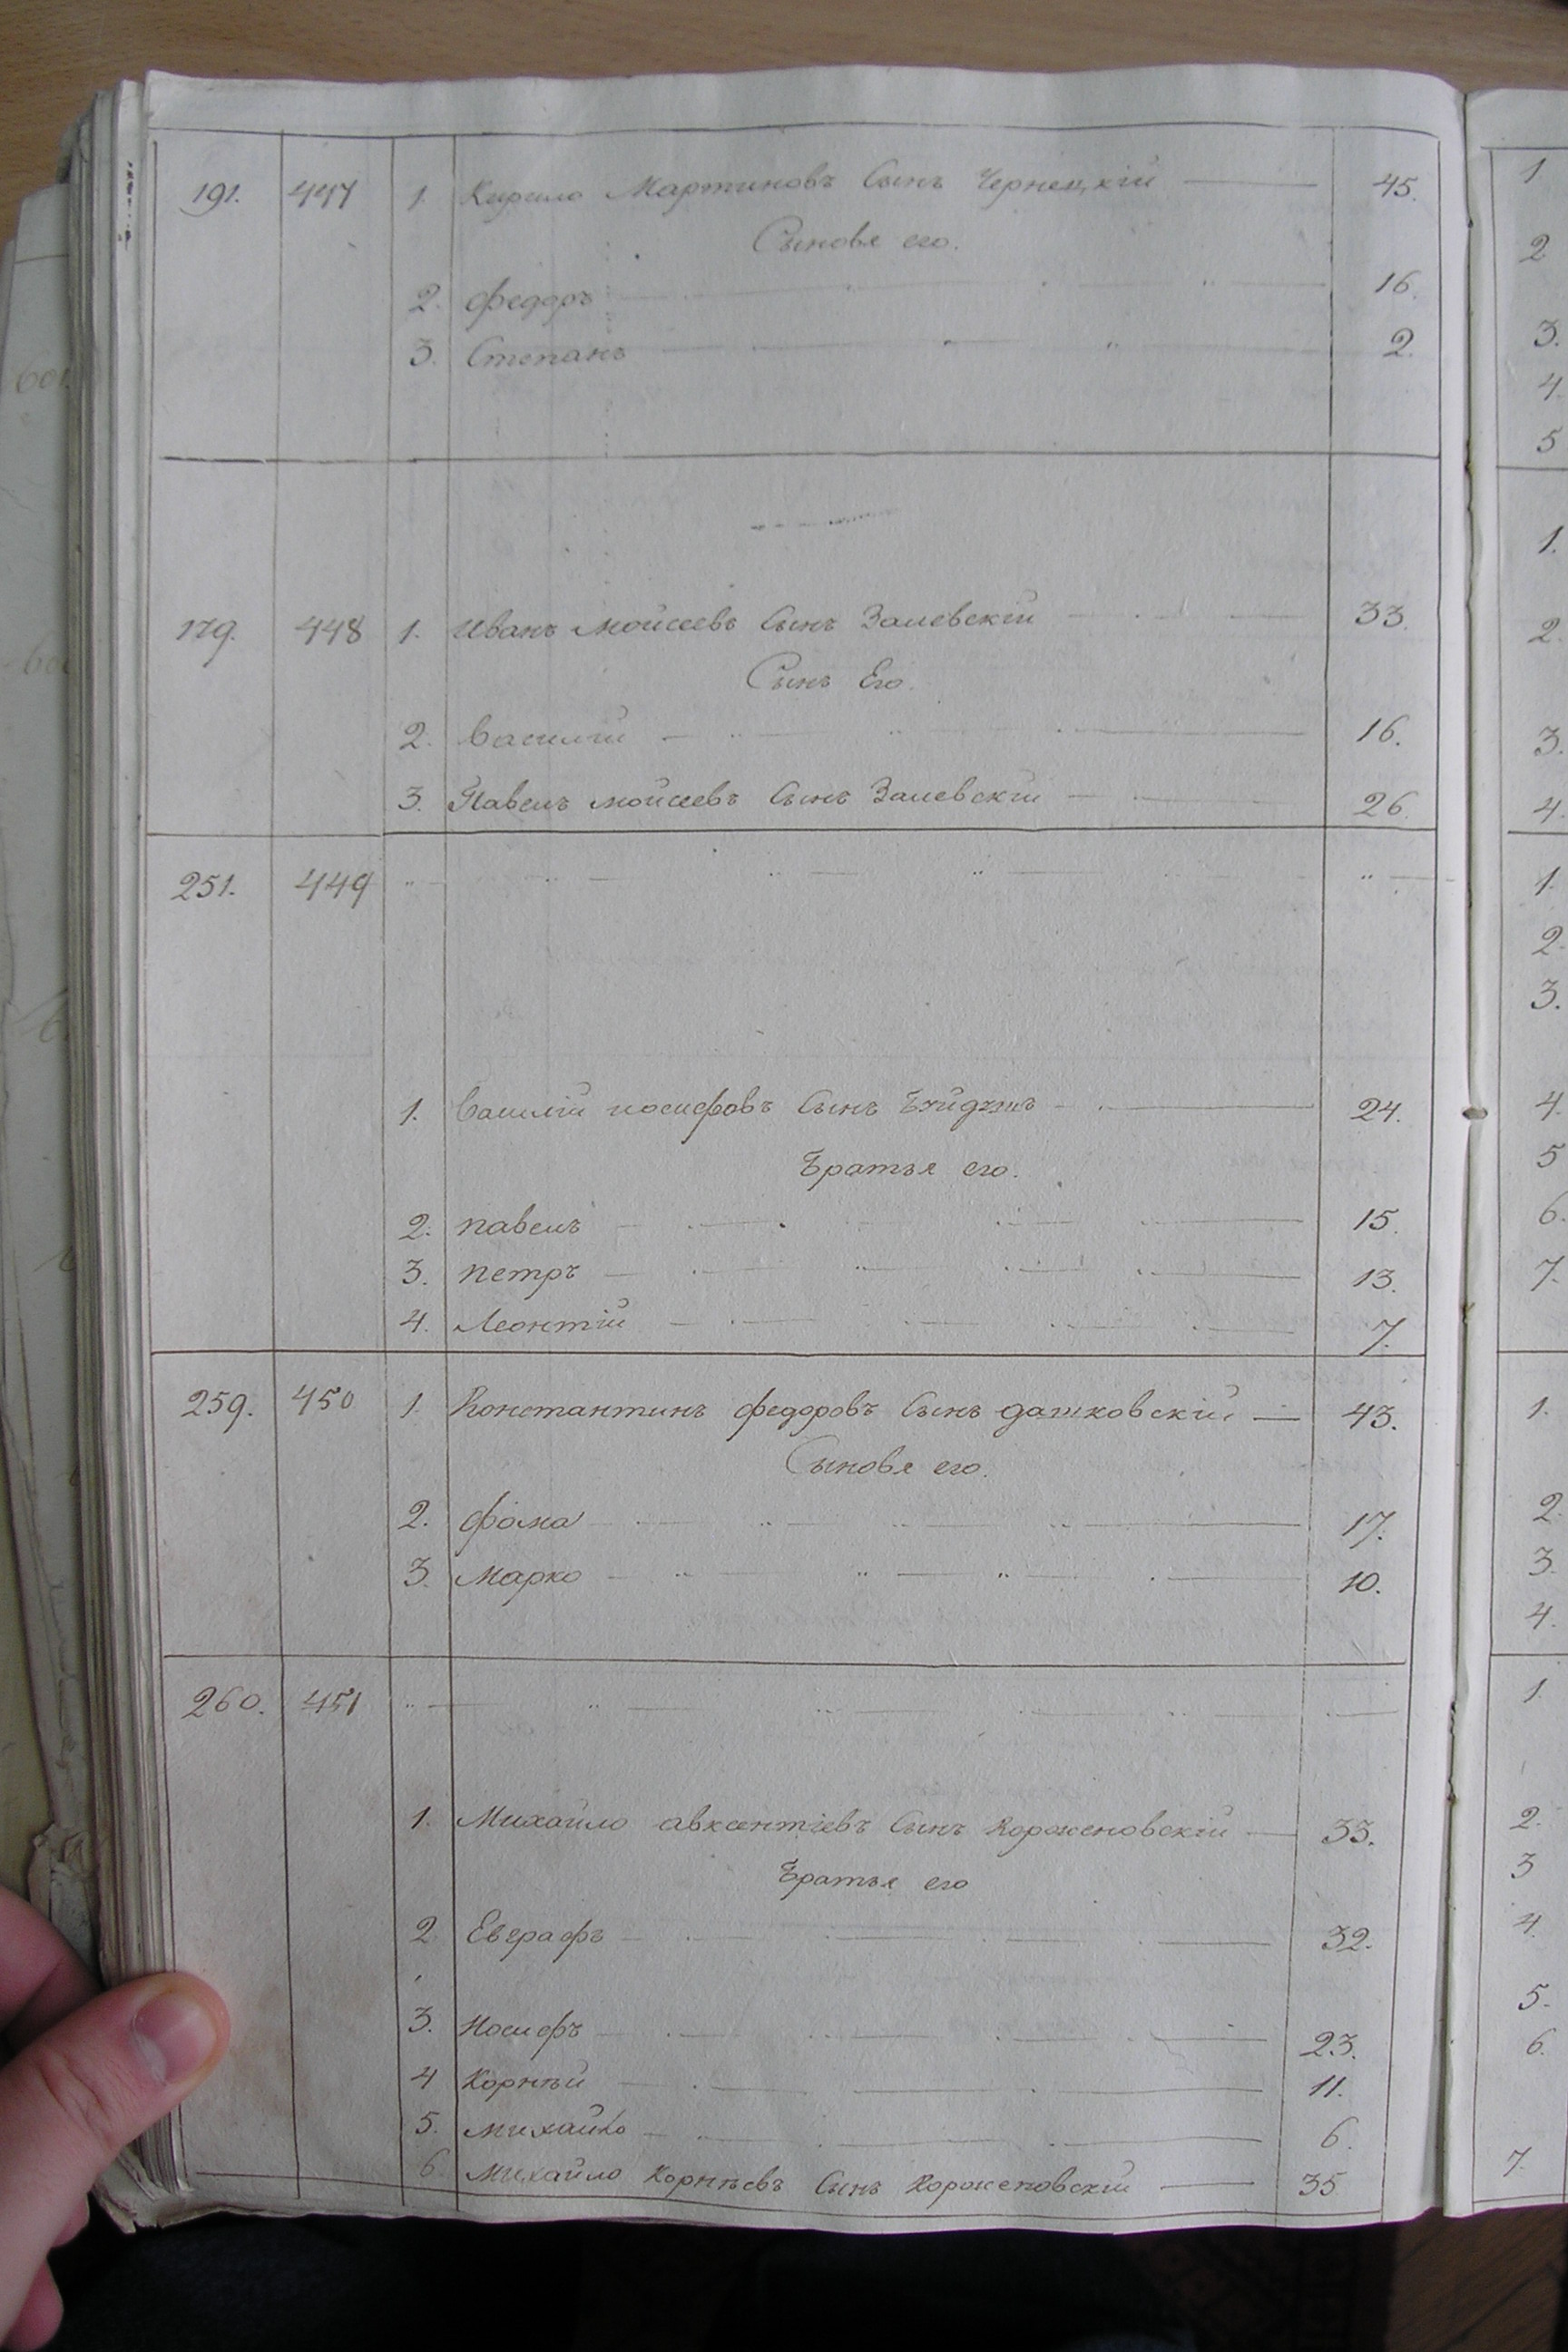 191. 447 1. Кирило Мартиновъ Сынъ Чернецкій 45.
Сыновя его.
2. федоръ 16.
3. Степанъ 2.
179. 448 1. Иванъ Мойсеевъ Сынъ Залевскій 33.
Сынъ Его.
2. василій 16.
3. Павелъ мойсеевъ Сынъ Залевскій 26.
251. 449
1. василій иосифовъ Сынъ 24.
Братья его.
2. павелъ 15.
3. петръ 13.
4. Леонтій 7.
259. 450 1. Константинъ федоровъ Сынъ дашковскій 43.
Сыновя его.
2. фома 17.
3. Марко 10.
260. 451
1. Михайло авксентіевъ Сынъ Короженовскій 33.
Братья его
2 Евграфъ 32.
3. Иосифъ 23.
4 Корнѣй 11.
5. михайло 6.
6 Михайло Корнѣевъ Сынъ Короженовскій 35
1
2
3.
4.
5
1.
2.
3.
4.
1.
2.
3.
4.
5
6.
7.
1.
2.
3.
4.
1.
2.
3
4.
5.
6.
7.